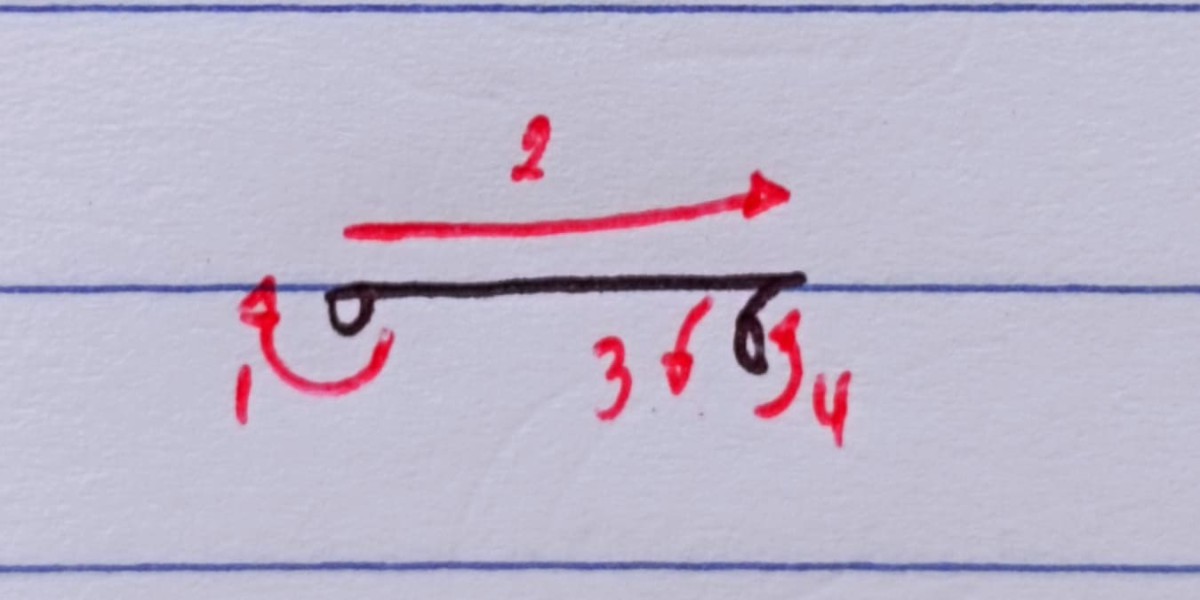 2
1 3 4